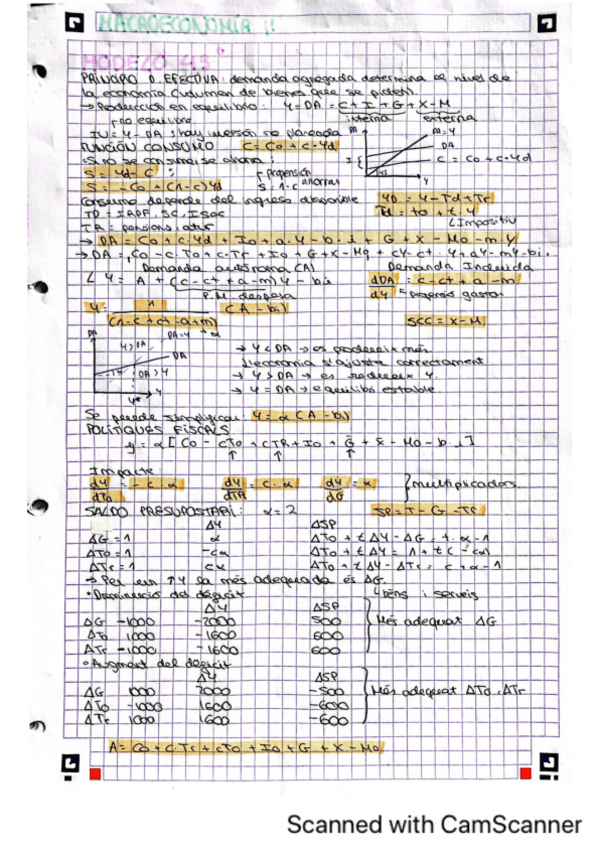 MACROECONOMIA !!
MODELO 45°
PRINCIPIO D. EFECTIVA: demanda agregada determina el nivel de
la economía (volumen de bienes que se piden).
→ Producción en equilibrio: Y = DA = C + I + G + X - M
interna externa
no equilibrio
IU = Y - DA : hay inversión no planeada
FUNCIÓN CONSUMO C = Co + c·Yd
DA = Y
DA
C = Co + c·Yd
45
Y
·Si no se consume se ahorra:
S = Yd - C
S = -Co + (1-c)Yd
propensión
S = 1-c ahorrar
Consumo depende del ingreso disponible
YD = Y - Td + Tr
TD = IRPF, SC, ISoc
Td = to + t.Y
L Impositiu
TR = pensions, atur
→ DA = Co + c.Yd + Io + a.Y - b.i + G + X - Mo - m.Y
→ DA = Co - c.To + c.Tr + Io + G + X - Mo + cY - ct.Y + aY - mY - bi.
Demanda autónoma (A) Demanda Inducida
L Y = A + (c - ct + a - m)Y - bi
P.M. despesa
dDA/dY = c - ct + a - m
propensió gastar
Y = 1/(1-c+ct-a+m) (A - bi)
SCC = X - M
DA
DA = Y
Y > DA
DA
DA > Y
Y
→ Y < DA → es produeix més.
L'economia s'ajusta correctament
→ Y > DA → es redueix Y.
→ Y = DA → equilibri estable.
Se puede simplificar: Y = α(A - bi)
POLÍTIQUES FISCALS
y = α [Co - cTo + cTR + Io + G + x - Mo - b.i]
Impacte:
dY/dTo = - c.α dY/dTR = c.α dY/dG = α } multiplicadors
SALDO PRESUPOSTARI: α = 2 SP = T - G - TR
ΔY ΔSP
ΔG = 1 α ΔTo + tΔY - ΔG = t.α - 1
ΔTo = 1 -cα ΔTo + tΔY = 1 + t(-cα)
ΔTr = 1 cα ΔTo + tΔY - ΔTr = c + α - 1
→ Per un ↑Y la més adequada és ΔG.
L bens i serveis
• Disminució del dèficit
ΔY ΔSP
ΔG -1000 -2000 500
ΔTo 1000 -1600 600
ΔTr -1000 -1600 600
} Més adequat ΔG
• Augment del dèficit
ΔY ΔSP
ΔG 1000 2000 -500
ΔTo -1000 1600 -600
ΔTr 1000 1600 -600
} Més adequat ΔTo, ΔTr
A = Co + cTr + cTo + Io + G + X - Mo
Scanned with CamScanner